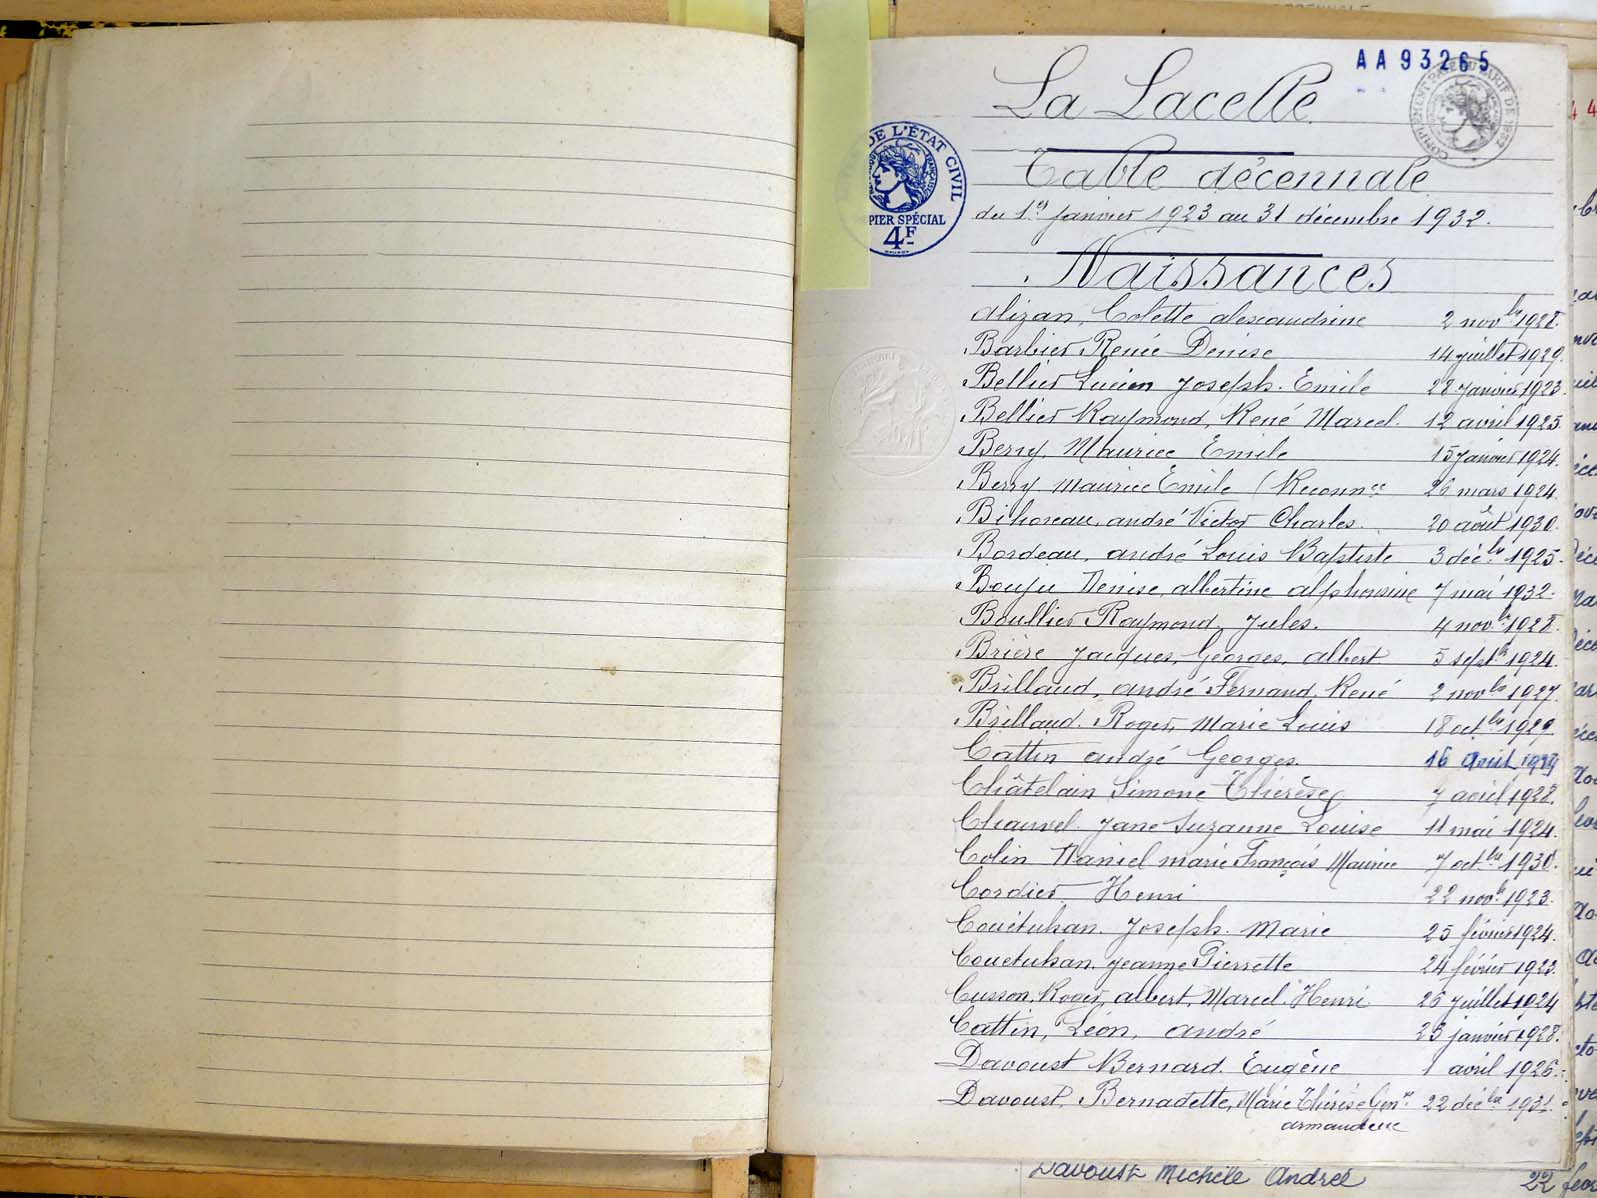 AA93265
La Lacelle
COMPLÉMENT
DE L'ÉTAT CIVIL
PIER SPÉCIAL
4F
Table décennale
du 1er janvier 1923 au 31 décembre 1932.
Naissances
Alizan, Colette Alexandrine 2 novbre 1928.
Barbier Renée Denise 14 juillet 1929.
Bellier Lucien Joseph Emile 28 janvier 1923
Bellier Raymond, René Marcel. 12 avril 1925.
Berry, Maurice Emile 15 janvier 1924.
Berry Maurice Emile (Reconnce 26 mars 1924.
Bihoreau, André Victor Charles. 20 août 1930.
Bordeau, André Louis Baptiste 3 décbre 1925.
Bouju Denise, Albertine Alphonsine 7 mai 1932.
Boullier Raymond, Jules. 4 novbre 1928.
Brière Jacques, Georges, Albert 5 septbre 1924.
Brillaud, André Fernand, René 2 novbre 1927.
Brillaud. Roger, Marie Louis 18 octbre 1929.
Cattin André Georges. 16 août 1929
Châtelain Simone Thérèse 7 avril 1928.
Chauvel Jane Suzanne Louise 11 mai 1924.
Colin Daniel Marie François Maurice 7 octbre 1930.
Cordier Henri 22 novbre 1923.
Couëtuhan. Joseph. Marie 25 février 1924.
Couetuhan, Jeanne Pierrette 24 février 1923.
Cusson, Roger, Albert, Marcel Henri 26 juillet 1924
Cattin, Léon, André 23 janvier 1928.
Davoust Bernard. Eugène 1 avril 1926.
Davoust, Bernadette, Marie Thérèse 22 décbre 1931.
Armandine
Davoust Michèle Andrée 22